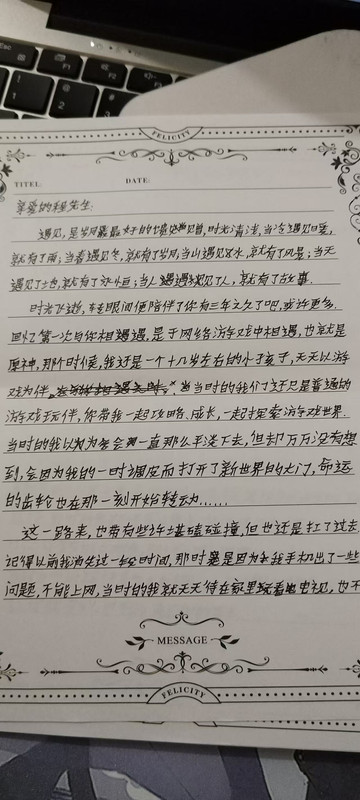 Esc
F1
F2
FELICITY
TITEL:
DATE:
亲爱的程先生:
遇见,是岁月最最好的馈赠,时光清浅,当冷遇见暖,
就有了雨;当春遇见冬,就有了岁月;当山遇见水,就有了风景;当天
遇见了地,就有了永恒;当人遇见了人,就有了故事.
时光飞逝,转眼间便陪伴了你有三年之久了吧,或许更多.
回忆第一次与你相遇,是于网络游戏中相遇,也就是
原神,那个时候,我还是一个十几岁左右的小孩子,天天以游
戏为伴,当时的我们还只是普通的
游戏玩伴,你带我一起攻略、成长,一起探索游戏世界.
当时的我以为会一直那么平淡下去,但却万万没有想
到,会因为我的一时调皮而打开了新世界的大门,命运
的齿轮也在那一刻开始转动……
这一路来,也带有些许磕磕碰撞,但也还是扛了过去
记得以前我消失过一段时间,那时是因为我手机出了一些
问题,不能上网,当时的我就天天待在家里玩看电视,也不
MESSAGE
FELICITY